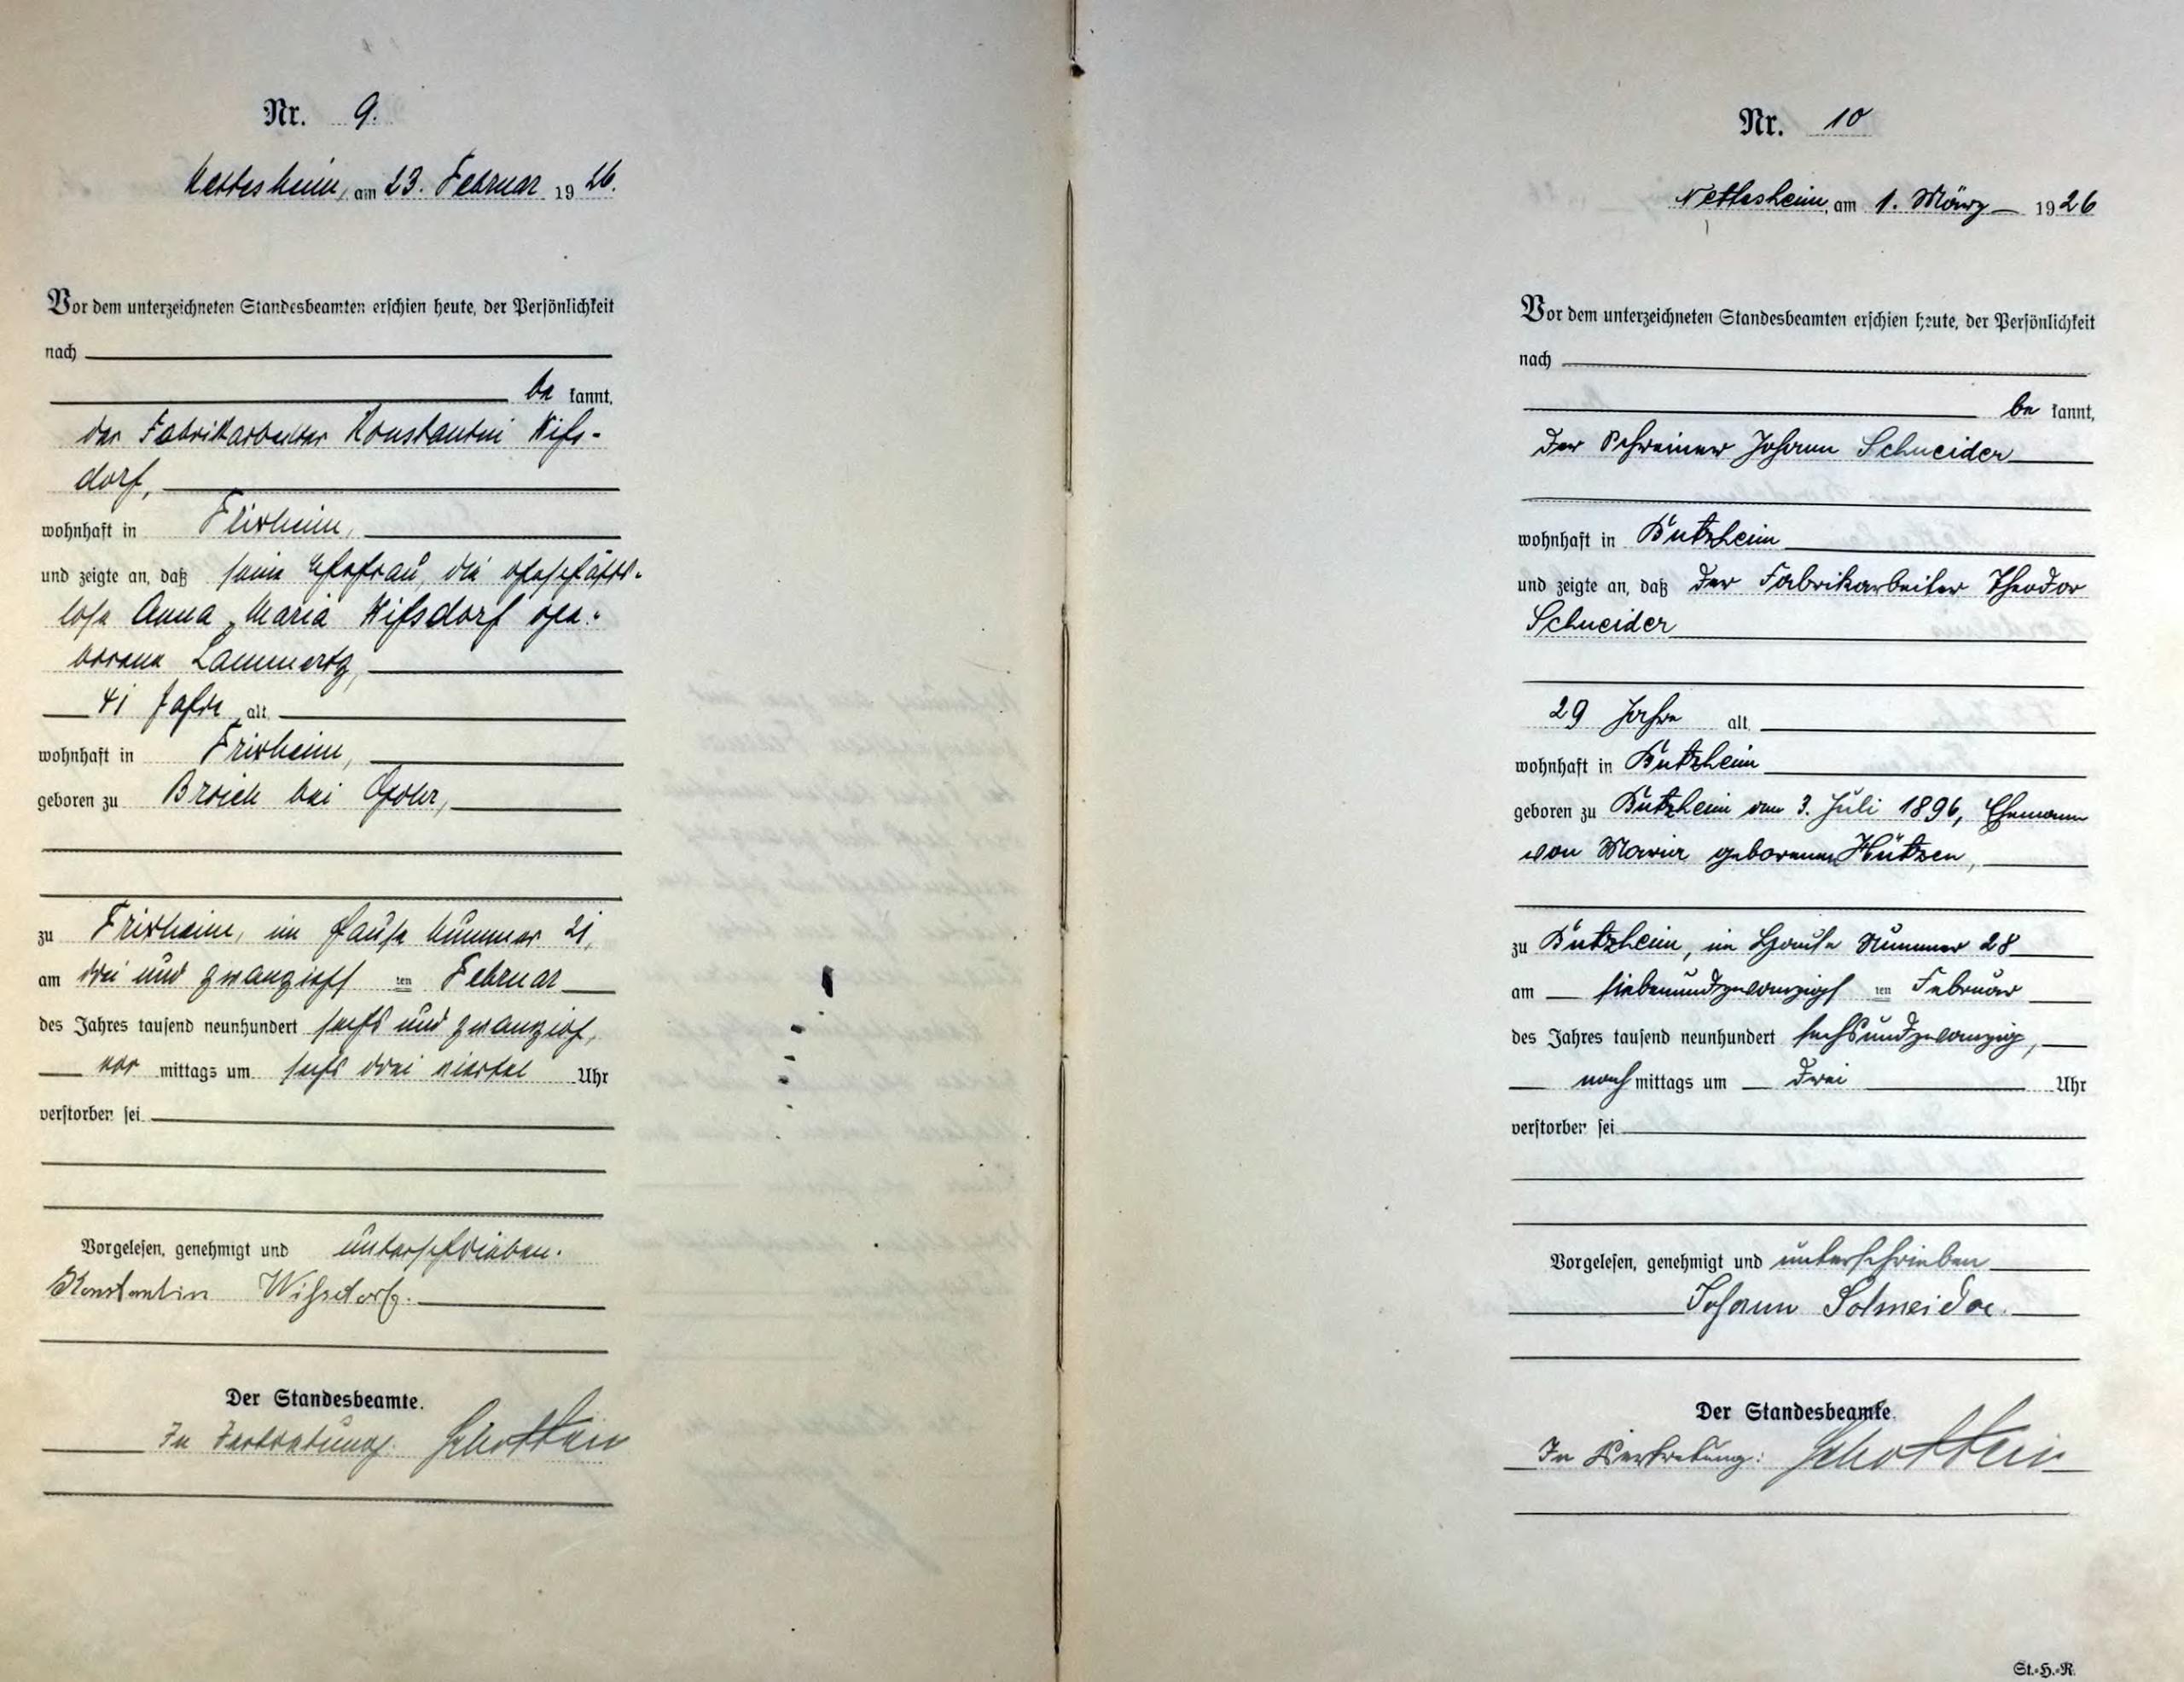 Nr. 9.
Nettesheim, am 23. Februar 1926.
Vor dem unterzeichneten Standesbeamten erschien heute, der Persönlichkeit
nach
be kannt,
der Fabrikarbeiter Konstantin Wißs-
dorf,
wohnhaft in Frixheim,
und zeigte an, daß seine Ehefrau, die geschäfts-
lose Anna Maria Wißdorf ge-
borene Lammertz,
41 Jahre alt,
wohnhaft in Frixheim,
geboren zu Broich bei Gohr,
zu Frixheim, im Hause Nummer 21,
am drei und zwanzigsten Februar
des Jahres tausend neunhundert sechs und zwanzig,
vor mittags um sechs drei viertel Uhr
verstorben sei.
Vorgelesen, genehmigt und unterschrieben.
Konstantin Wißdorf.
Der Standesbeamte.
In Vertretung. Schotten
Nr. 10
Nettesheim, am 1. März 1926
Vor dem unterzeichneten Standesbeamten erschien heute, der Persönlichkeit
nach
be kannt,
der Schreiner Johann Schneider
wohnhaft in Butzheim
und zeigte an, daß der Fabrikarbeiter Theodor
Schneider
29 Jahre alt,
wohnhaft in Butzheim
geboren zu Butzheim am 3. Juli 1896, Ehemann
von Maria geborenen Hützen,
zu Butzheim, im Hause Nummer 28
am siebenundzwanzigsten Februar
des Jahres tausend neunhundert sechsundzwanzig,
nach mittags um drei Uhr
verstorben sei.
Vorgelesen, genehmigt und unterschrieben
Johann Schneider.
Der Standesbeamte.
In Vertretung: Schotten
St.-H.-R.